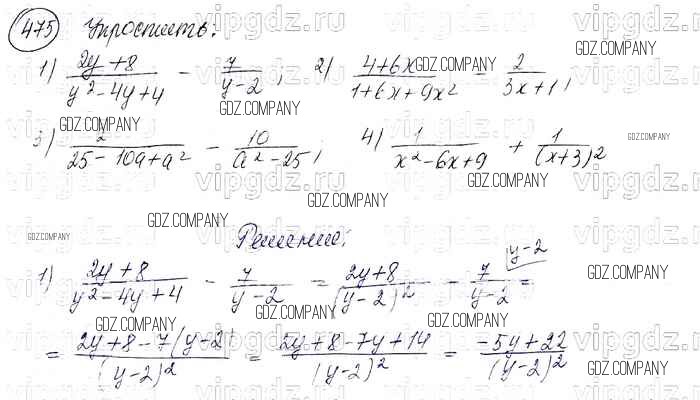 475 Упростить:
1) (2y+8)/(y²-4y+4) - 7/(y-2); 2) (4+6x)/(1+6x+9x²) - 2/(3x+1);
3) 2/(25-10a+a²) - 10/(a²-25); 4) 1/(x²-6x+9) + 1/(x+3)²
Решение:
1) (2y+8)/(y²-4y+4) - 7/(y-2) = (2y+8)/(y-2)² - 7/(y-2) |y-2 =
= (2y+8-7(y-2))/(y-2)² = (2y+8-7y+14)/(y-2)² = (-5y+22)/(y-2)²
vipgdz.ru
GDZ.COMPANY